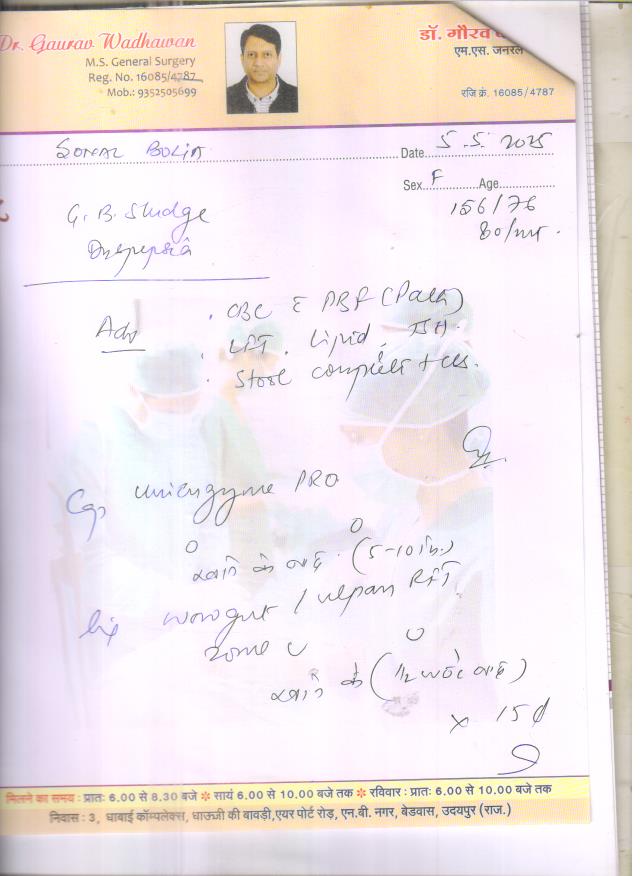 Dr. Gaurav Wadhawan
M.S. General Surgery
Reg. No. 16085/4787
Mob.: 9352505699
डॉ. गौरव
एम.एस. जनरल
रजि क्रं. 16085/4787
SONAL BOLIA
Date 5.5.2025
Sex F Age
156/76
80/mt.
G.B. Sludge
Dyspepsia
Adv
. CBC c PBF (Path)
. LFT, Lipid,
. Stool complete + c/s.
Cap Unienzyme PRO
खाने के बाद (5-10 min.)
RFT
20ml
खाने के (1/2 घंटे बाद)
x 15 d
मिलने का समय : प्रातः 6.00 से 8.30 बजे ❇ सायं 6.00 से 10.00 बजे तक ❇ रविवार : प्रातः 6.00 से 10.00 बजे तक
निवास : 3, धाबाई कॉम्पलेक्स, धाऊजी की बावड़ी,एयर पोर्ट रोड़, एन.बी. नगर, बेडवास, उदयपुर (राज.)